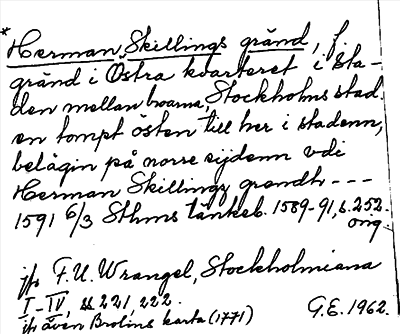 * Herman Skillings gränd, f.
gränd i Östra kvarteret i sta-
den mellan broarna, Stockholms stad.
en tompt östen till her i stadenn,
belägin på norre sijdenn vdi
Herman Skillings grendh - - -
1591 6/3 Sthms tänkeb. 1589-91, s. 252.
orig.
jfr F.U. Wrangel, Stockholmiana
I-IV, ss 221, 222.
jfr även Brolins karta (1771)
G.E. 1962.